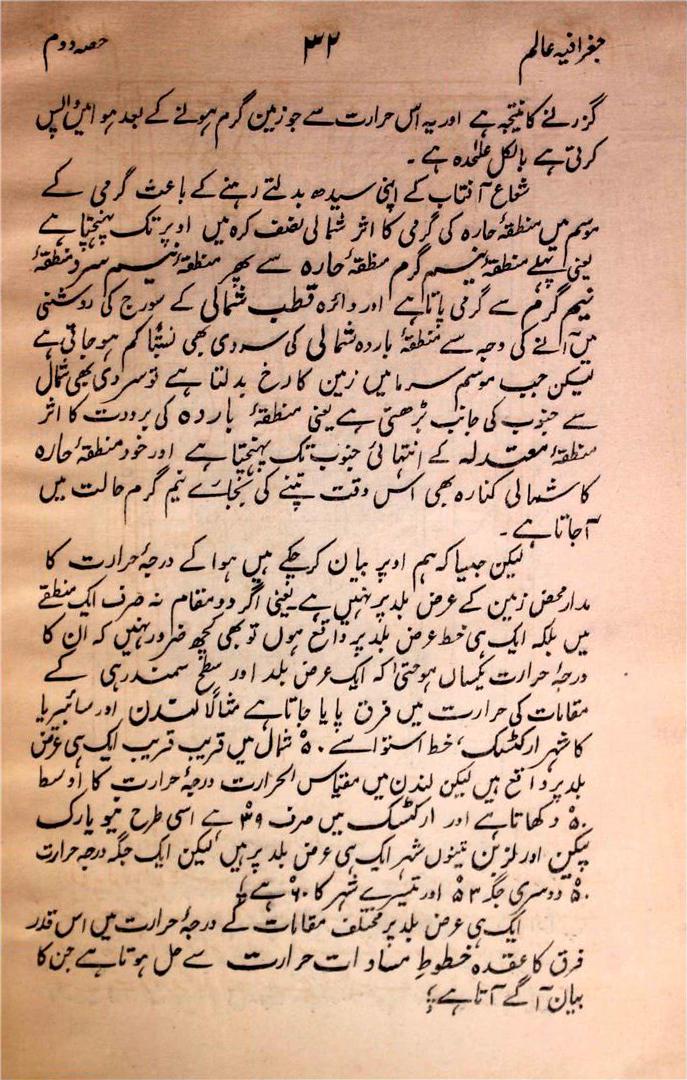 جغرافیہ عالم ۳۲ حصہ دوم
گزرنے کا نتیجہ ہے اور یہ اس حرارت سے جو زمین گرم ہونے کے بعد ہوا میں واپس
کرتی ہے بالکل علٰحدہ ہے۔
شعاع آفتاب کے اپنی سیدھ بدلتے رہنے کے باعث گرمی کے
موسم میں منطقۂ حارہ کی گرمی کا اثر شمالی نصف کرہ میں اوپر تک پہنچتا ہے
یعنی پہلے منطقۂ نیم گرم منطقۂ حارہ سے پھر منطقۂ نیم سرد منطقۂ
نیم گرم سے گرمی پاتا ہے اور دائرہ قطب شمالی کے سورج کی روشنی
میں آنے کی وجہ سے منطقۂ باردہ شمالی کی سردی بھی نسبتًا کم ہو جاتی ہے
لیکن جب موسم سرما میں زمین کا رخ بدلتا ہے تو سردی بھی شمال
سے جنوب کی جانب بڑھتی ہے یعنی منطقۂ باردہ کی برودت کا اثر
منطقۂ معتدلہ کے انتہائی جنوب تک پہنچتا ہے اور خود منطقۂ حارہ
کا شمالی کنارہ بھی اس وقت تپنے کی بجائے نیم گرم حالت میں
آ جاتا ہے۔
لیکن جیسا کہ ہم اوپر بیان کر چکے ہیں ہوا کے درجۂ حرارت کا
مدار محض زمین کے عرض بلد پر نہیں ہے یعنی اگر دو مقام نہ صرف ایک منطقے
میں بلکہ ایک ہی خط عرض بلد پر واقع ہوں تو بھی کچھ ضرور نہیں کہ ان کا
درجۂ حرارت یکساں ہو حتیٰ کہ ایک عرض بلد اور سطح سمندر ہی کے
مقامات کی حرارت میں فرق پایا جاتا ہے مثالًا لندن اور سائبیریا
کا شہر ارکٹسک، خط استوا سے ۵۰ْ شمال میں قریب قریب ایک ہی عرض
بلد پر واقع ہیں لیکن لندن میں مقیاس الحرارت درجۂ حرارت کا اوسط
۵۰ْ دکھاتا ہے اور ارکٹسک میں صرف ۳۹ْ ہے اسی طرح نیو یارک
پیکن اور لزبن تینوں شہر ایک ہی عرض بلد پر ہیں لیکن ایک جگہ درجہ حرارت
۵۰ْ دوسری جگہ ۵۳ْ اور تیسرے شہر کا ۶۰ْ ہے۔
ایک ہی عرض بلد پر مختلف مقامات کے درجۂ حرارت میں اس قدر
فرق کا عقدہ خطوطِ مساوات حرارت سے حل ہوتا ہے جن کا
بیان آگے آتا ہے؛